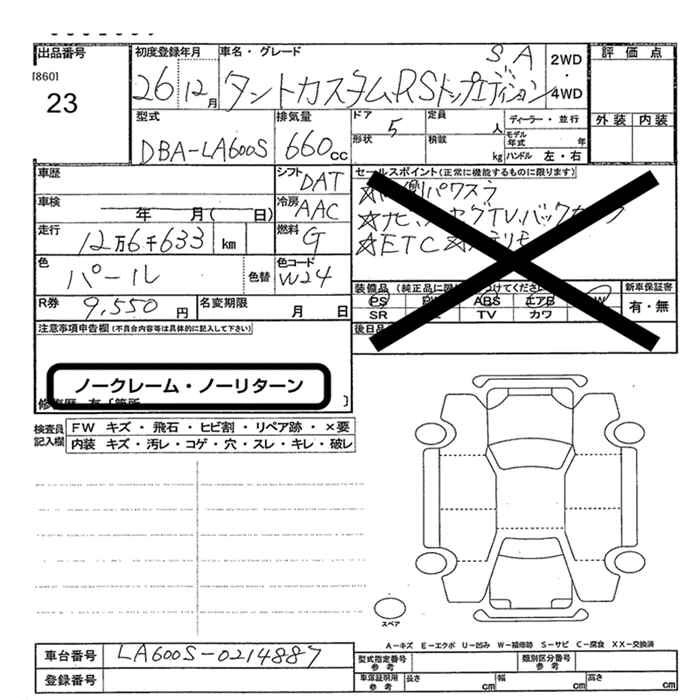 出品番号
[860]
23
初度登録年月
26 12月
車名・グレード
SA
タントカスタムRSトップエディション
2WD
・
4WD
評価点
外装 内装
型式
DBA-LA600S
排気量
660cc
ドア
5
形状
定員
人
積載
kg
ディーラー・並行
モデル年式 年
ハンドル 左・右
車歴
シフト
DAT
車検
年 月( 日)
冷房
AAC
走行
12万6千633 km
燃料
G
色
パール
色替
色コード
W24
R券
9,550円
名変期限
月 日
セールスポイント(正常に機能するものに限ります)
パワスラ
ETC
装備品
PS
ABS
エアB
SR
TV
カワ
後日品
新車保証書
有・無
注意事項申告欄(不具合内容等は具体的に記入して下さい)
ノークレーム・ノーリターン
検査員記入欄
FW キズ・飛石・ヒビ割・リペア跡・×要
内装 キズ・汚レ・コゲ・穴・スレ・キレ・破レ
スペア
A-キズ E-エクボ U-凹み W-補修跡 S-サビ C-腐食 XX-交換済
車台番号
LA600S-0214887
登録番号
型式指定番号参考
類別区分番号参考
車庫証明用参考
長さ cm
幅 cm
高さ cm